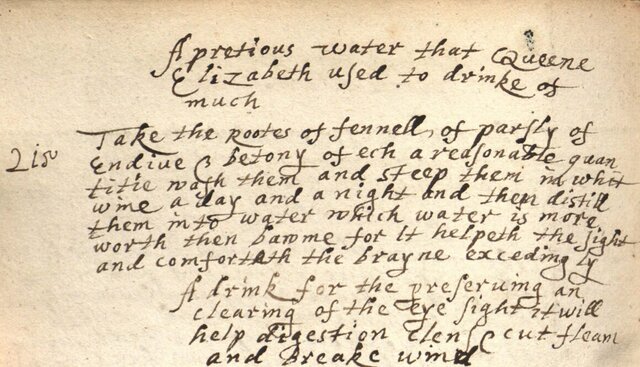 A pretious water that Queene
Elizabeth used to drinke of
much
Take the rootes of fennell, of parsly of
Endive & betony of ech a reasonable quan
titie wash them and steep them in whit
wine a day and a night and then distill
them into water which water is more
worth then bawme for It helpeth the sight
and comforteth the brayne exceding ly
A drink for the preserving an
clearing of the eye sight it will
help digestion clens & cut fleam
and Breake wind